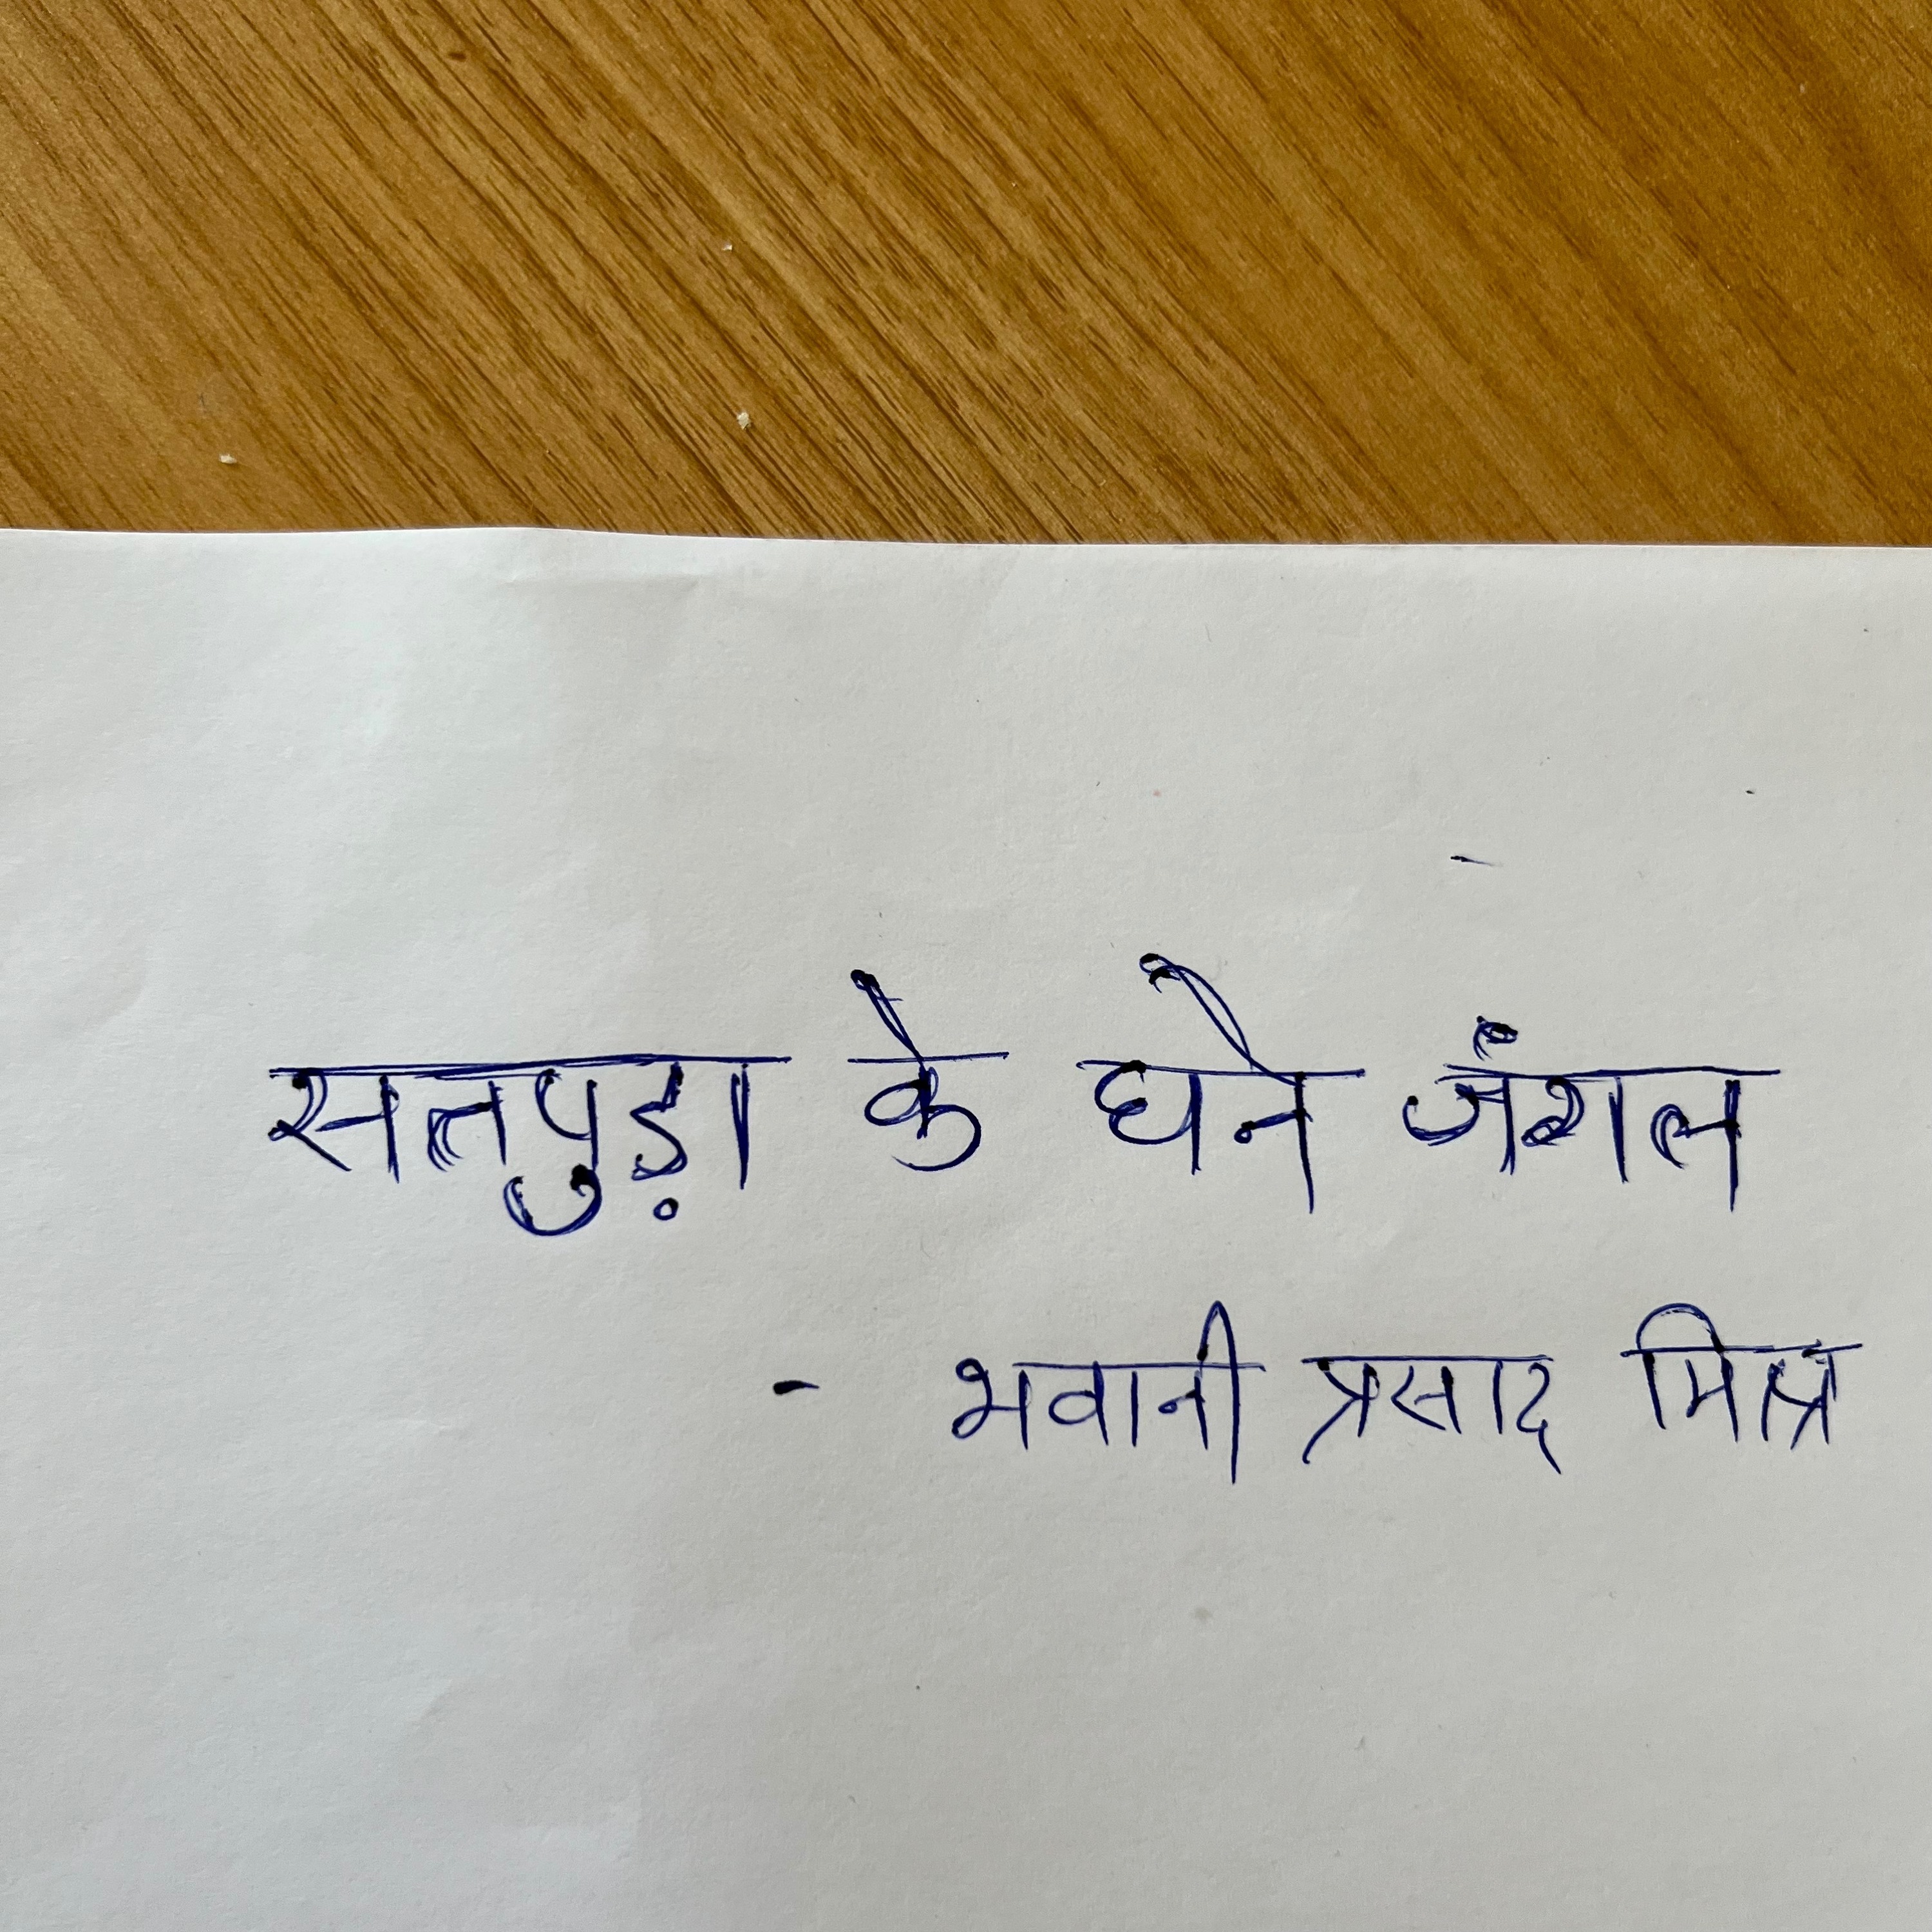 सतपुड़ा के घने जंगल
- भवानी प्रसाद मिश्र